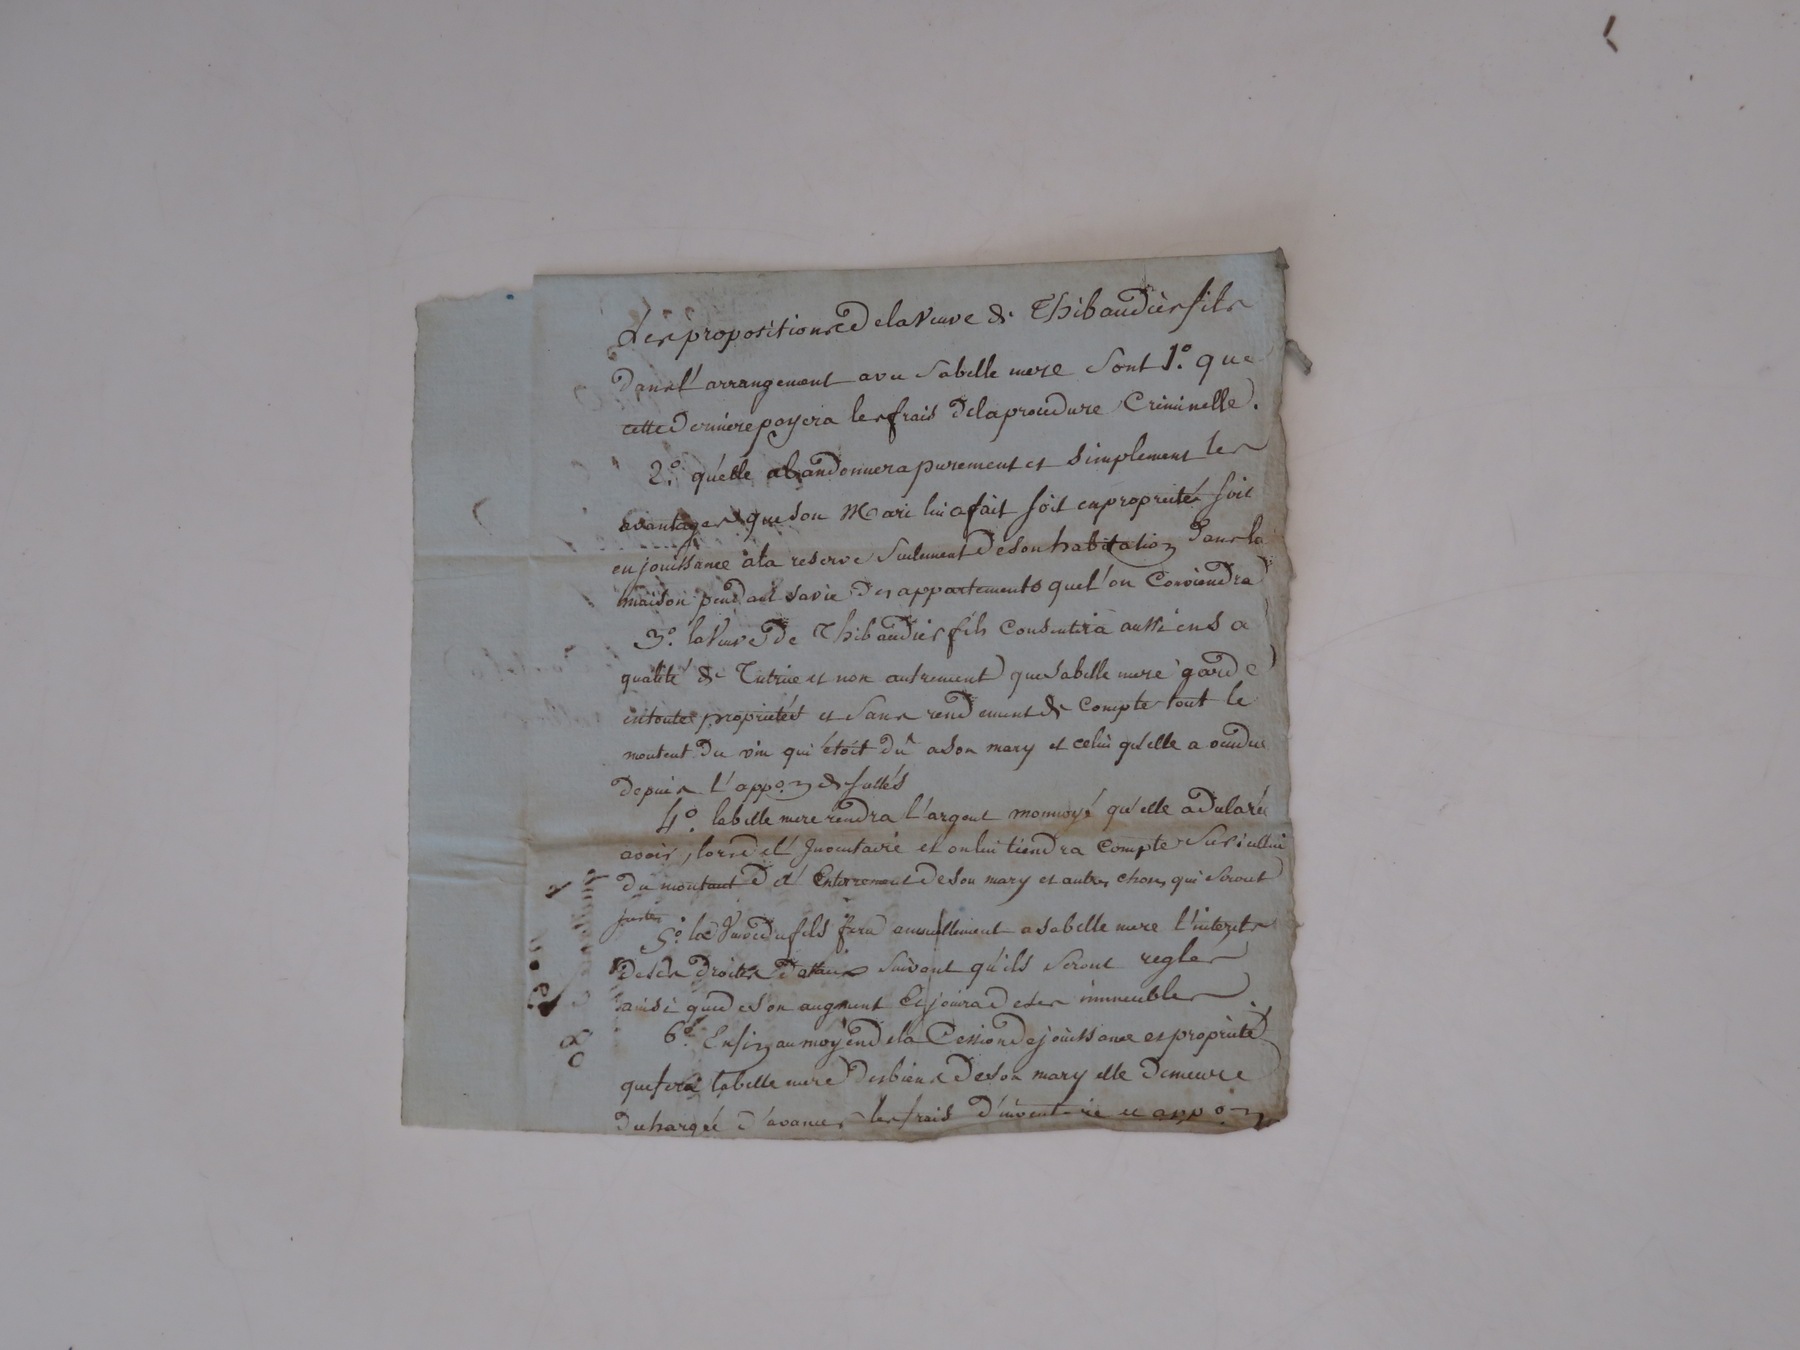 Les propositions de la Veuve de Thibaudier fils
dans l'arrangement avec sa belle mere sont 1.° que
cette derniere payera les frais de la procedure Criminelle.
2.° qu'elle abandonnera purement et simplement les
avantages que son Mari lui a fait soit en proprieté soit
en jouissance à la reserve seulement de son habitation dans la
maison pendant sa vie des appartements que l'on Conviendra
3.° la Veuve de Thibaudier fils Consentira aussi en sa
qualité de Tutrice et non autrement que sa belle mere garde
en toute proprieté et sans rendement de Compte tout le
montent du vin qui étoit dû a son mary et celui qu'elle a vendu
depuis l'appo.on de sellés
4.° la belle mere rendra l'argent monnoyé qu'elle a dularée
avoir, lors de l'Inventaire et on lui tiendra Compte sur icellui
du montant de l'Enterrement de son mary et autres choses qui seront
justes
5.° la Veuve du fils fera annuellement a sa belle mere l'interets
de ses droits suivant qu'ils seront regles
ainsi que de son augment Et jouira de ses immeubles
6.° Enfin au moyen de la Cession de jouissance et proprieté
que fera la belle mere des biens de son mary elle demeure
dechargée d'avancer les frais d'inventaire et appo.on